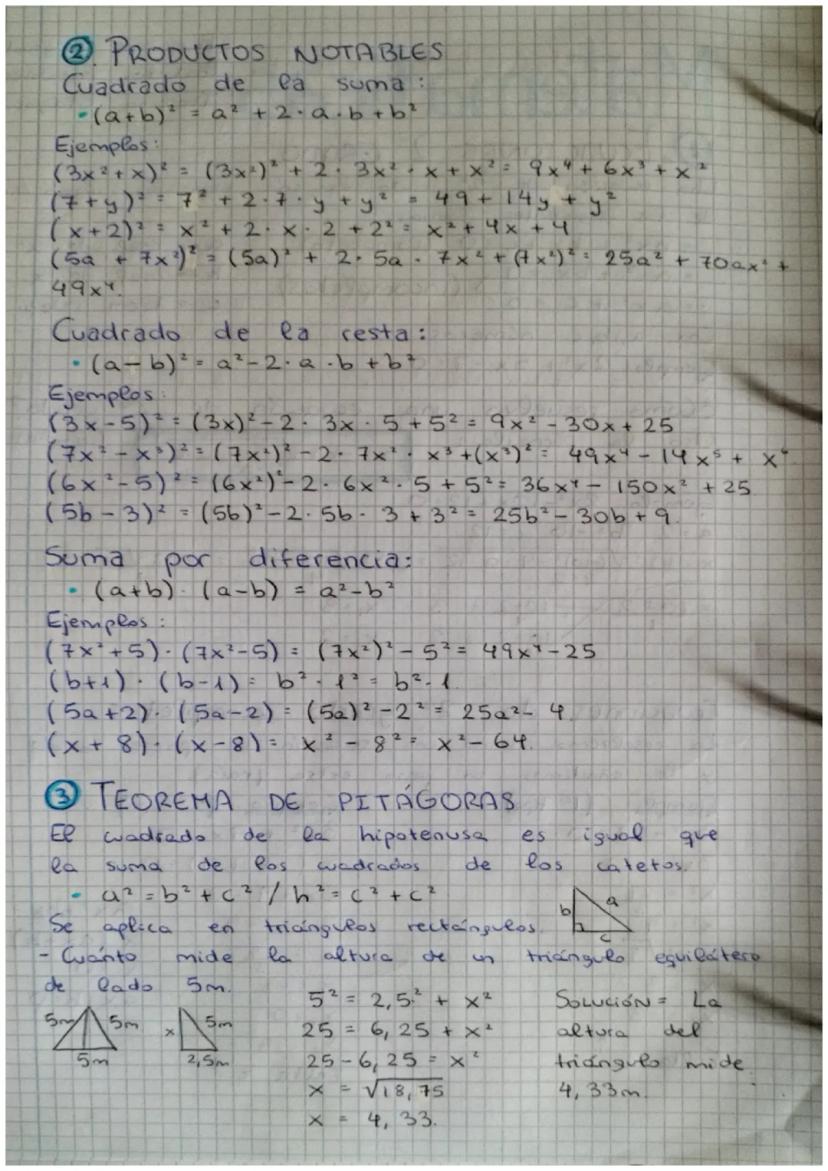 ② PRODUCTOS NOTABLES
Cuadrado de la suma:
• (a+b)² = a² + 2·a·b + b²
Ejemplos:
(3x² + x)² = (3x²)² + 2· 3x² · x + x² = 9x⁴ + 6x³ + x²
(7+y)² = 7² + 2·7·y + y² = 49 + 14y + y²
(x+2)² = x² + 2· x· 2 + 2² = x² + 4x + 4
(5a + 7x²)² = (5a)² + 2· 5a · 7x² + (7x²)² = 25a² + 70ax² +
49x⁴.
Cuadrado de la resta:
• (a-b)² = a² - 2· a ·b + b²
Ejemplos:
(3x-5)² = (3x)² - 2· 3x · 5 + 5² = 9x² - 30x + 25
(7x² - x³)² = (7x²)² - 2· 7x² · x³ + (x³)² = 49x⁴ - 14x⁵ + x⁶
(6x² - 5)² = (6x²)² - 2· 6x² · 5 + 5² = 36x⁴ - 150x² + 25
(5b - 3)² = (5b)² - 2· 5b· 3 + 3² = 25b² - 30b + 9.
Suma por diferencia:
• (a+b) · (a-b) = a² - b²
Ejemplos:
(7x²+5) · (7x²-5) = (7x²)² - 5² = 49x⁴ - 25
(b+1) · (b-1) = b² - 1² = b² - 1.
(5a+2) · (5a-2) = (5a)² - 2² = 25a² - 4.
(x + 8) · (x-8) = x² - 8² = x² - 64.
③ TEOREMA DE PITÁGORAS
El cuadrado de la hipotenusa es igual que
la suma de los cuadrados de los catetos.
• a² = b² + c² / h² = c² + c²
b a c
Se aplica en triángulos rectángulos.
- Cuánto mide la altura de un triángulo equilátero
de lado 5m.
5m 5m 5m
x 5m 2,5m
5² = 2,5² + x²
25 = 6,25 + x²
25 - 6,25 = x²
x = √18,75
x = 4,33.
SOLUCIÓN = La
altura del
triángulo mide
4,33m.